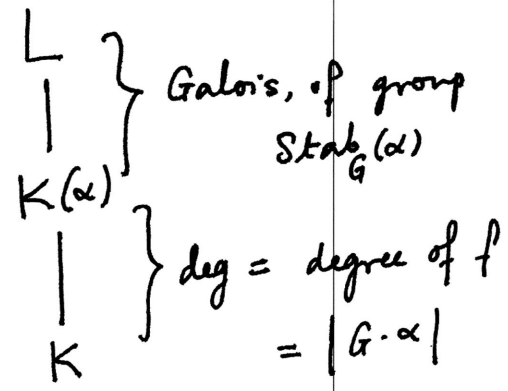 L
Galois, of group
Stab_G(α)
K(α)
deg = degree of f
= |G·α|
K